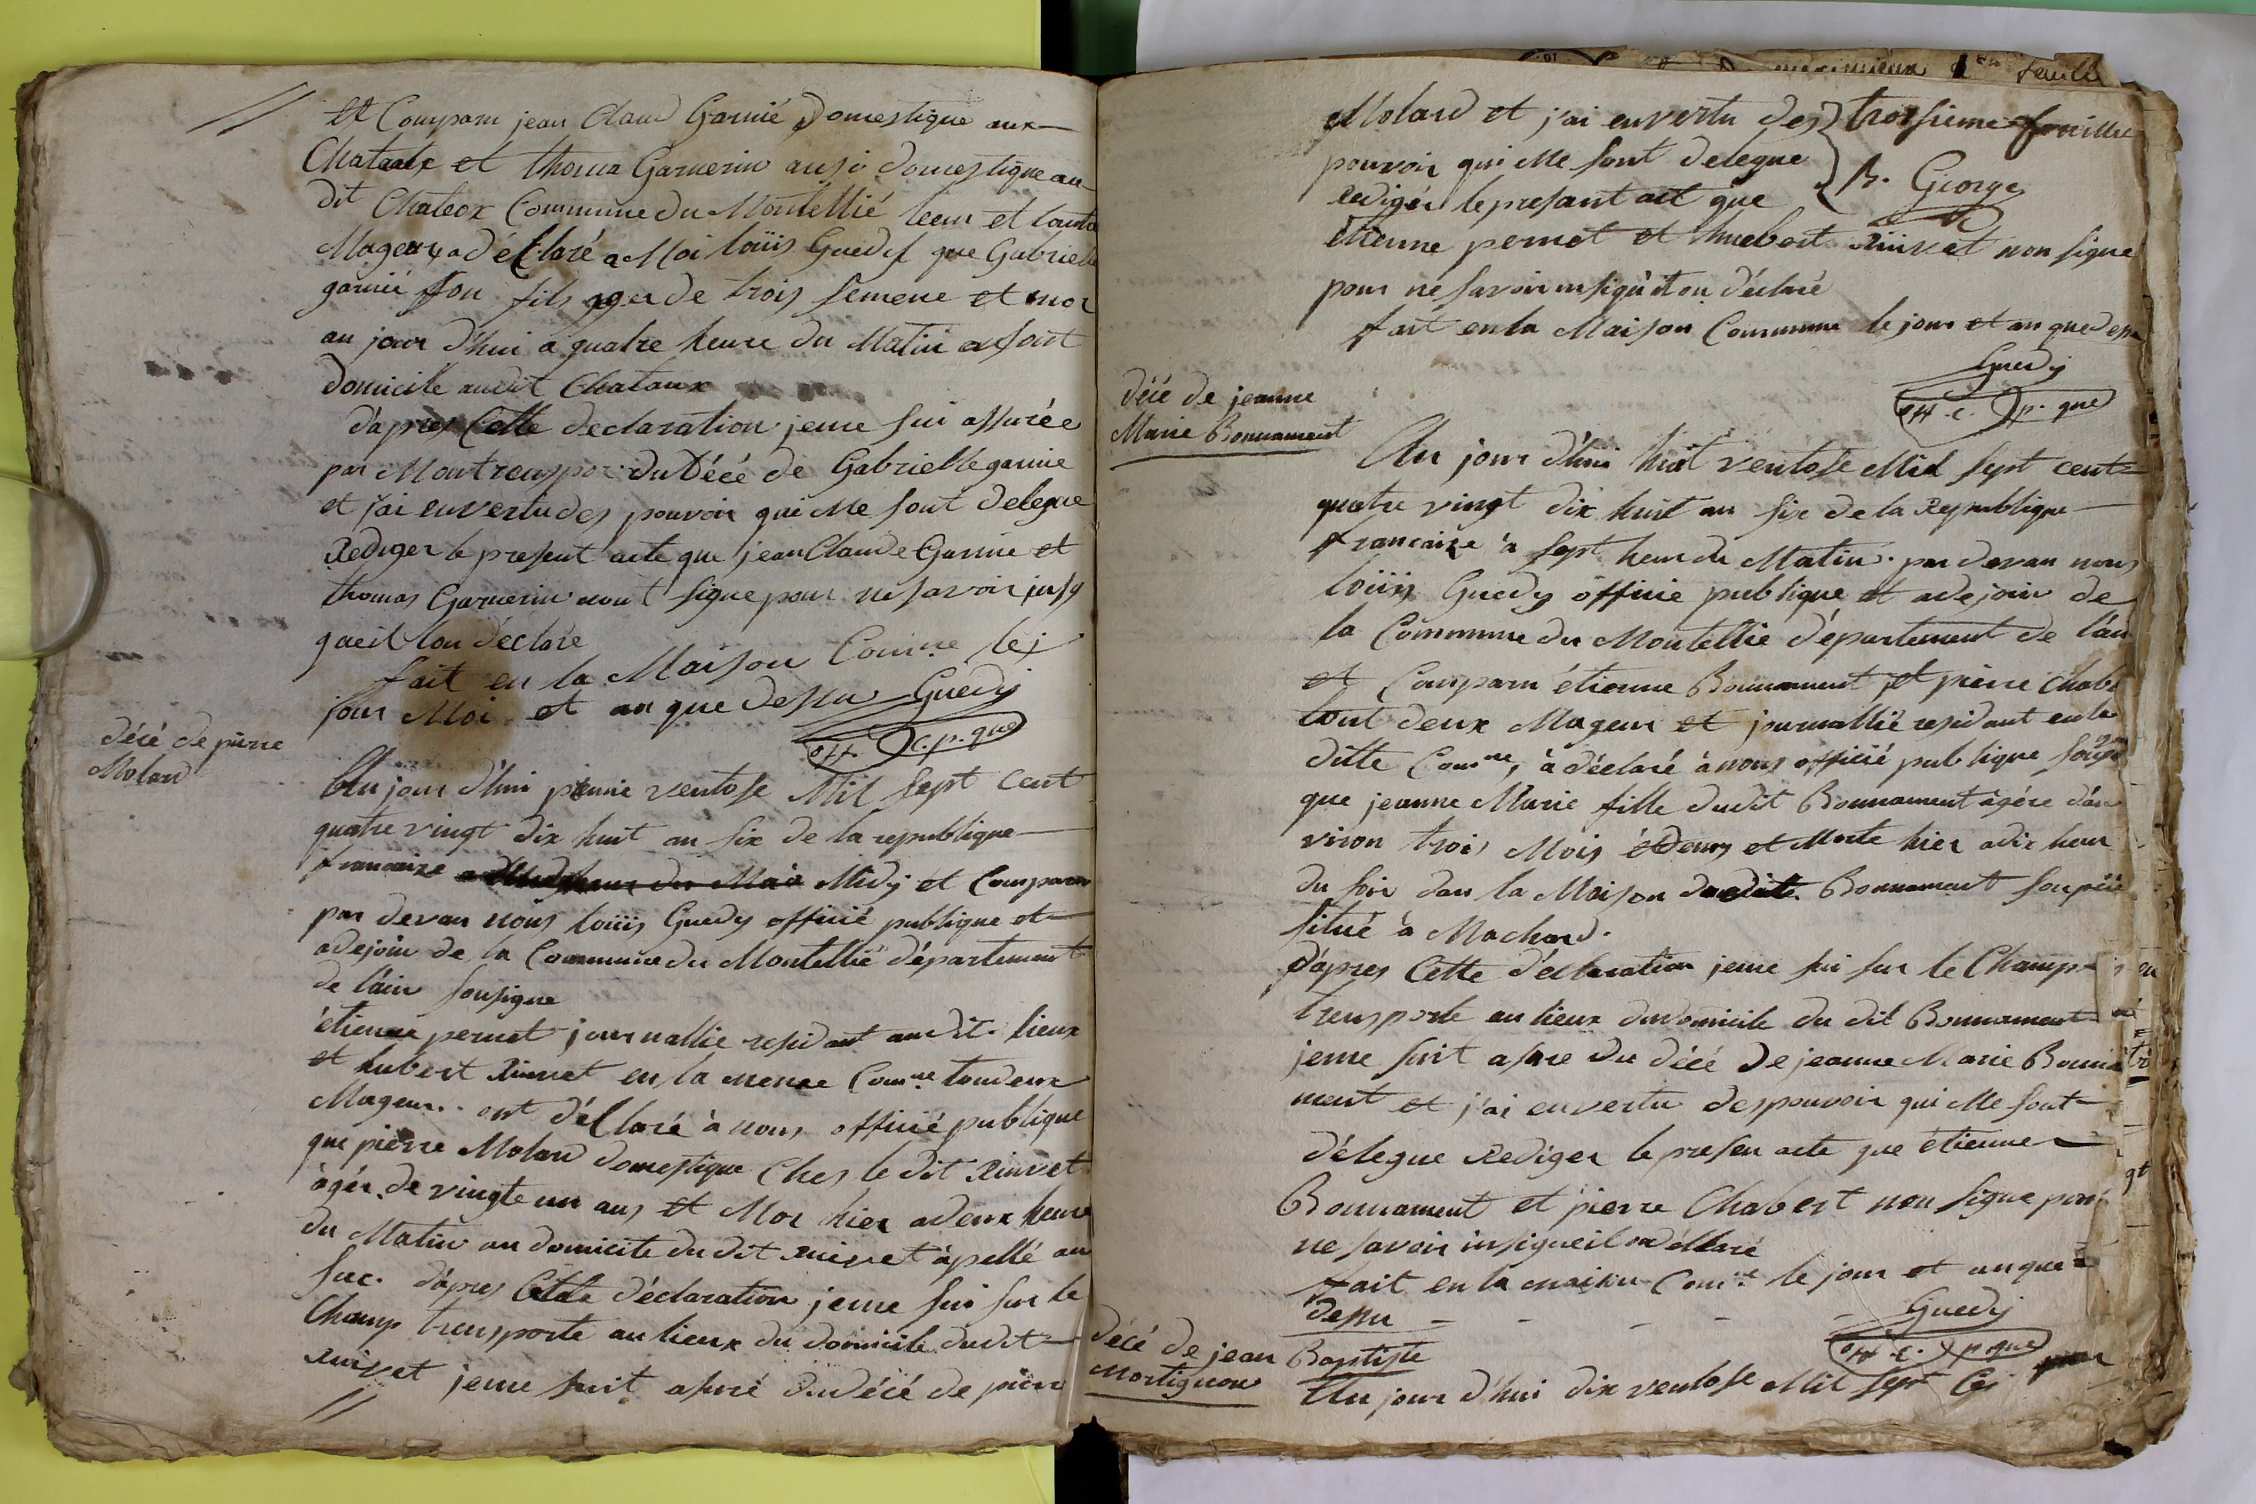 et Comparu jean Claud Garnié Domestique aux
Chataux et thoma Garnerin ausi domestique au
dit Chateox Commune du Montellié leeur et lautre
Mageur, a déClaré a Moi loüis Guedy que Gabrielle
garnié son fils ager de trois semene et mor
au jour d'hui a quatre heure du Matin en sont
domicile audit Chataux
d'apres Cette declaration jeme sui assurée
par Mon trenspor du décé de Gabrielle garnie
et j'ai en vertu des pouvoir qui Me sont delegue
Rediger le present acte que jean Claude Garnie et
thomas Garnerin nont signe pour ne savoir insy
queil lon déclare
fait en la Maison Comne les
jour Moi et an que dessu Guedy
off. c. p. que
décé de pierre
Molard
Au jour d'hui premie ventose Mil sept cent
quatre vingt dix huit an six de la republique
francaize Midy et Comparu
par devan nous loüis Guedy officié publique et
adejoin de la Commune du Montellié département
de l'ain sousigne
étienne pernet journallie residant audit lieux
et hubert Rinvet en la meme Comne toudeux
Mageur ont déClaré à nous officié publique
que pierre Molard domestique Ches le dit Rinvet
àgér de vingte un ans et Mor hier a deux heure
du Matin au domicile du dit Rinvet àpellé au
suc. d'apres Cette déclaration jeme sui sur le
Champ trensporte au lieux du domicile dudit
Rinvet jeme suit asuré du décé de pierre
Molard et j'ai en vertu des troisieme feuille
pouvoir qui Me sont delegue
redigér le presant act que B. George
étienne pernet et hubert Rinvet non signe
pour ne savoir insi quil on déclaré
fait en la Maison Commune le jour et an que dessu
Guedy
off. c. p. que
décé de jeanne
Marie Bonnament
Au jour d'hui huit ventose Mil sept cent
quatre vingt dix huit an six de la Republique
francaize à sept heur du Matin. par devan nous
loüis Guedy officie publique et adejoin de
la Commune du Montellie département de l'ain
et Comparu étienne Bonnament et pierre Chabe
tout deux Mageur et journallié residant en la
ditte Comne, à déclaré à nous officié publique sousigne
que jeanne Marie fille dudit Bonnament àgére d'an
viron trois Mois et demy et Morte hier a dix heur
du soir dan la Maison dudit Bonnament son père
situé à Machard.
D'apres Cette d'éclaration jeme sui sur le Champ
trensporte au lieux du domicile du dit Bonnament
jeme suit asure du décé de jeanne Marie Bonna
ment et j'ai en vertu des pouvoir qui Me sont
délegue Rediger le presen acte que étienne
Bonnament et pierre Chabert non signe pour
ne savoir insi queil on dellaré
fait en la maison Comne le jour et an que
dessu Guedy
off. c. p. que
décé de jean Baptiste
Mortignon
Au jour d'hui dix ventose Mil sept